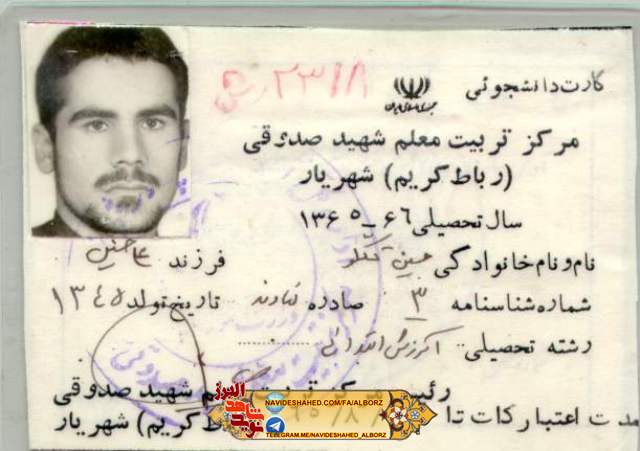 کارت دانشجوئی
۲۳۱۸
جمهوری اسلامی ایران
مرکز تربیت معلم شهید صدوقی
(رباط کریم) شهریار
سال تحصیلی ۶۶-۱۳۶۵
نام و نام خانوادگی حسین فرزند
شماره شناسنامه ۳ صادره نهاوند تاریخ تولد ۱۳۴۵
رشته تحصیلی آموزش ابتدائی
رئیس مرکز تربیت معلم شهید صدوقی
مدت اعتبار کارت تا
(رباط کریم) شهریار
نوید شاهد البرز
NAVIDESHAHED.COM/FA/ALBORZ
TELEGRAM.ME/NAVIDESHAHED_ALBORZ